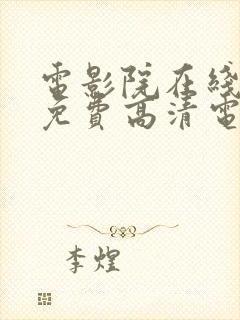 電影院在綫
免費高清電
李煌